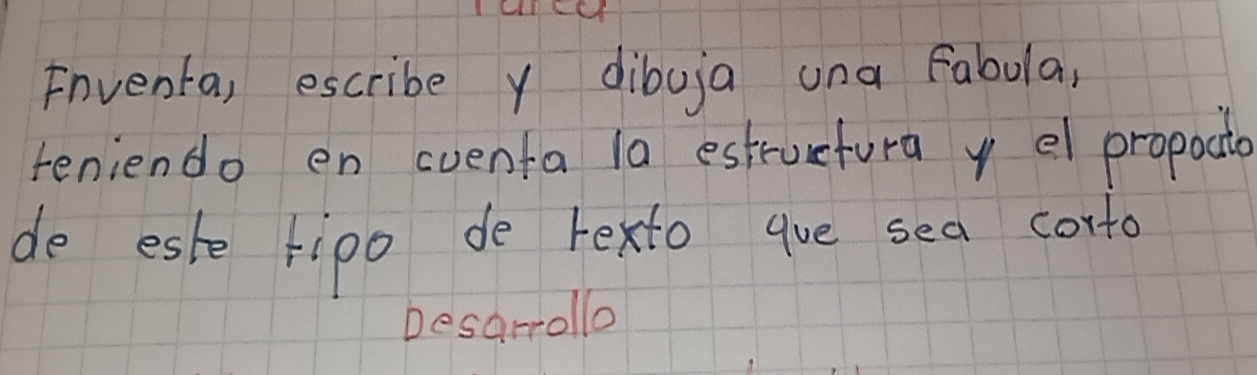 Tarea
Inventa, escribe y dibuja una Fabula,
teniendo en cuenta la estructura y el propocito
de este tipo de texto que sea corto
Desarrollo